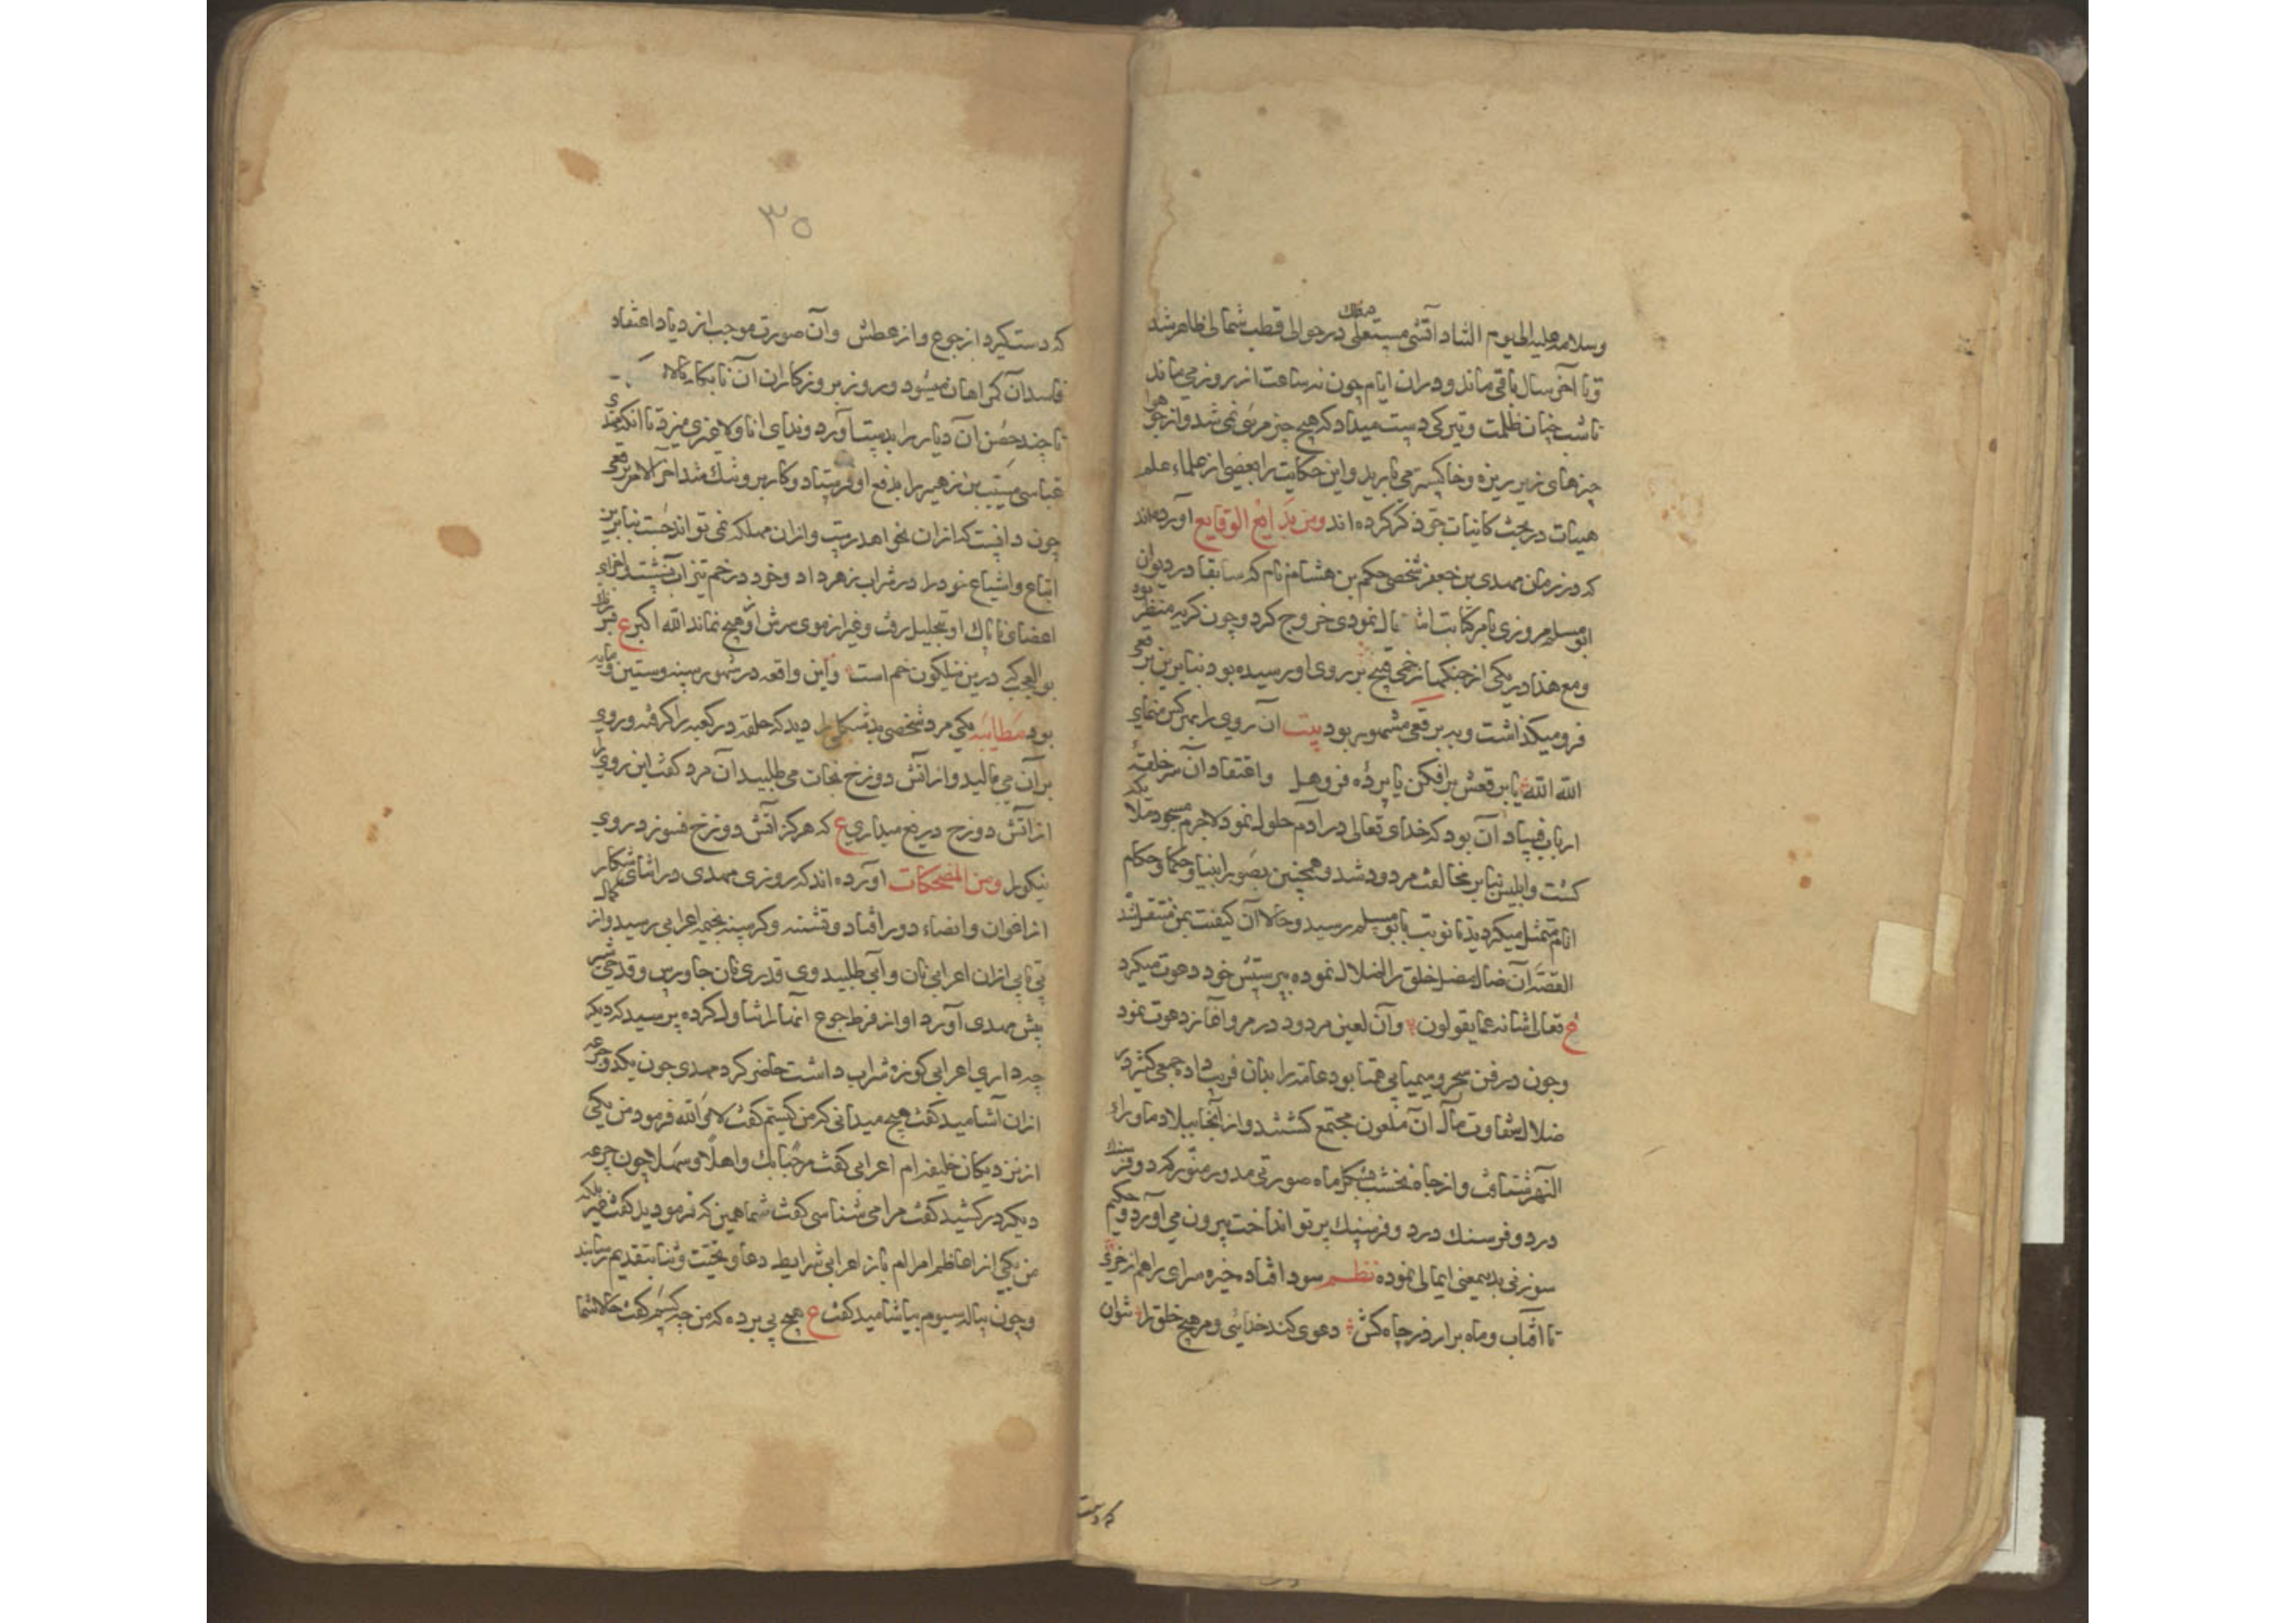 وسلامه علیه الی یوم التناد آتشی مشتعل در حوالی قطب شمالی ظاهر شد
و تا آخر سال باقی ماند و در ان ایام چون نه ساعت از روز می ماند
تا شب چنان ظلمت و تیرکی دست میداد که هیچ چیز مرئی نمی شد و از جو هوا
چیزهای زیر ریزه و خاکستر می بارید و این حکایت را بعضی از علماء علم
هیات در بحث کاینات جو ذکر کرده اند ومن بدایع الوقایع آورده اند
که در زمان مهدی بن جعفر شخصی حکم بن هشام نام که سابقا در دیوان
ابو مسلم مروزی بامر کتابت اشتغال نمودی خروج کرد و چون کریه منظر بود
ومع هذا در یکی از جنکها زخمی قبیح بر روی او رسیده بود بنابرین برقعی
فرو میکذاشت و به برقعی مشهور بود بیت آن روی را بهر کس منمای
الله الله یا برقعش برافکن یا پرده فرو هل و اعتقاد آن سر حلقهٔ
ارباب فساد آن بود که خدای تعالی در آدم حلول نمود لاجرم مسجود ملایکه
کشت و ابلیس بنابر مخالفت مردود شد و همچنین بصور انبیا و حکما و حکام
انام متمثل میکردید تا نوبت بابو مسلم رسید و حالا آن کیفیت بمن منتقل شد
القصه آن ضال مضل خلق را اضلال نموده بپرستش خود دعوت میکرد
ع تعالی شانه عما یقولون وآن لعین مردود در مرو آغاز دعوت نمود
و چون در فن سحر و سیمیا بی همتا بود عامه را بدان فریب داده جمعی کثیر در
ضلال شقاوت مآل آن ملعون مجتمع کشتند و از آنجا ببلاد ماوراء
النهر شتافت و از چاه نخشب بشکل ماه صورتی مدور منور کرد و فرسنک
در دو فرسنک در دو فرسنک پرتو انداخت بیرون می آورد و حکیم
سوزنی بدیمعنی ایمائی نموده نظم سودا فتاده خیره سرای را هم از خری
تا آفتاب و ماه برارد ز چاه کش دعوی کند خدائی و مر هیچ خلق را نتوان
که دست
۳۵
که دست کیرد از جوع و از عطش وآن صورت موجب ازدیاد اعتقاد
فاسد آن کمراهان میشود و روز بروز کار ان آن نابکار بالا
تا چند حصن آن دیار را بدست آورد و ندای انا ولا غیری میزد تا انکه مهدی
عباسی مسیب بن زهیر را بدفع او فرستاد و کار برو تنک شد آخر الامر برقعی
چون دانست که ازان نخواهد رست و ازان مهلکه نمی تواند جست بنابرین
اتباع و اشیاع خود را در شراب زهر داد و خود در خم تیزاب نشسته اجزای
اعضای ناپاک او بتحلیل رفت و غیر از موی سرش از او هیچ نماند الله اکبر ع
بو العجبی درین نیلکون خم است واین واقعه در شهور سنه وستین ومایه
بود مطایبه یکی مرد شخصی بد شکل را دید که حلقه در کعبه را کرفته و روی
بر آن می مالید و از آتش دوزخ نجات می طلبید آن مرد کفت این روی را
از آتش دوزخ دریغ میداری ع که هرکز آتش دوزخ نسوزد روی
نیکو را ومن المضحکات آورده اند که روزی مهدی در اثنای شکار
از اعوان و انصار دور افتاد و تشنه و کرسنه بخیمه اعرابی رسید و از کمال
بی تابی ازان اعرابی نان و آبی طلبید وی قدری نان جاورس و قدحی شیر
پیش مهدی آورد او از فرط جوع آنها را تناول کرده پرسید که دیکر
چه داری اعرابی کوزه شراب داشت حاضر کرد مهدی چون یکدو جرعه
ازان آشامید کفت هیچ میدانی که من کیستم کفت لا والله فرمود من یکی
از نزدیکان خلیفه ام اعرابی کفت مرحبا بک و اهلا و سهلا چون جرعه
دیکر در کشید کفت مرا می شناسی کفت شما همین که فرمودید کفت غیر بلکه
من یکی از اعاظم امرا ام باز اعرابی شرایط دعا و تحیت و ثنا بتقدیم رسانید
و چون پیاله سیوم بیاشامید کفت ع هیچ پی برده که من چه کسم کفت حالا شما